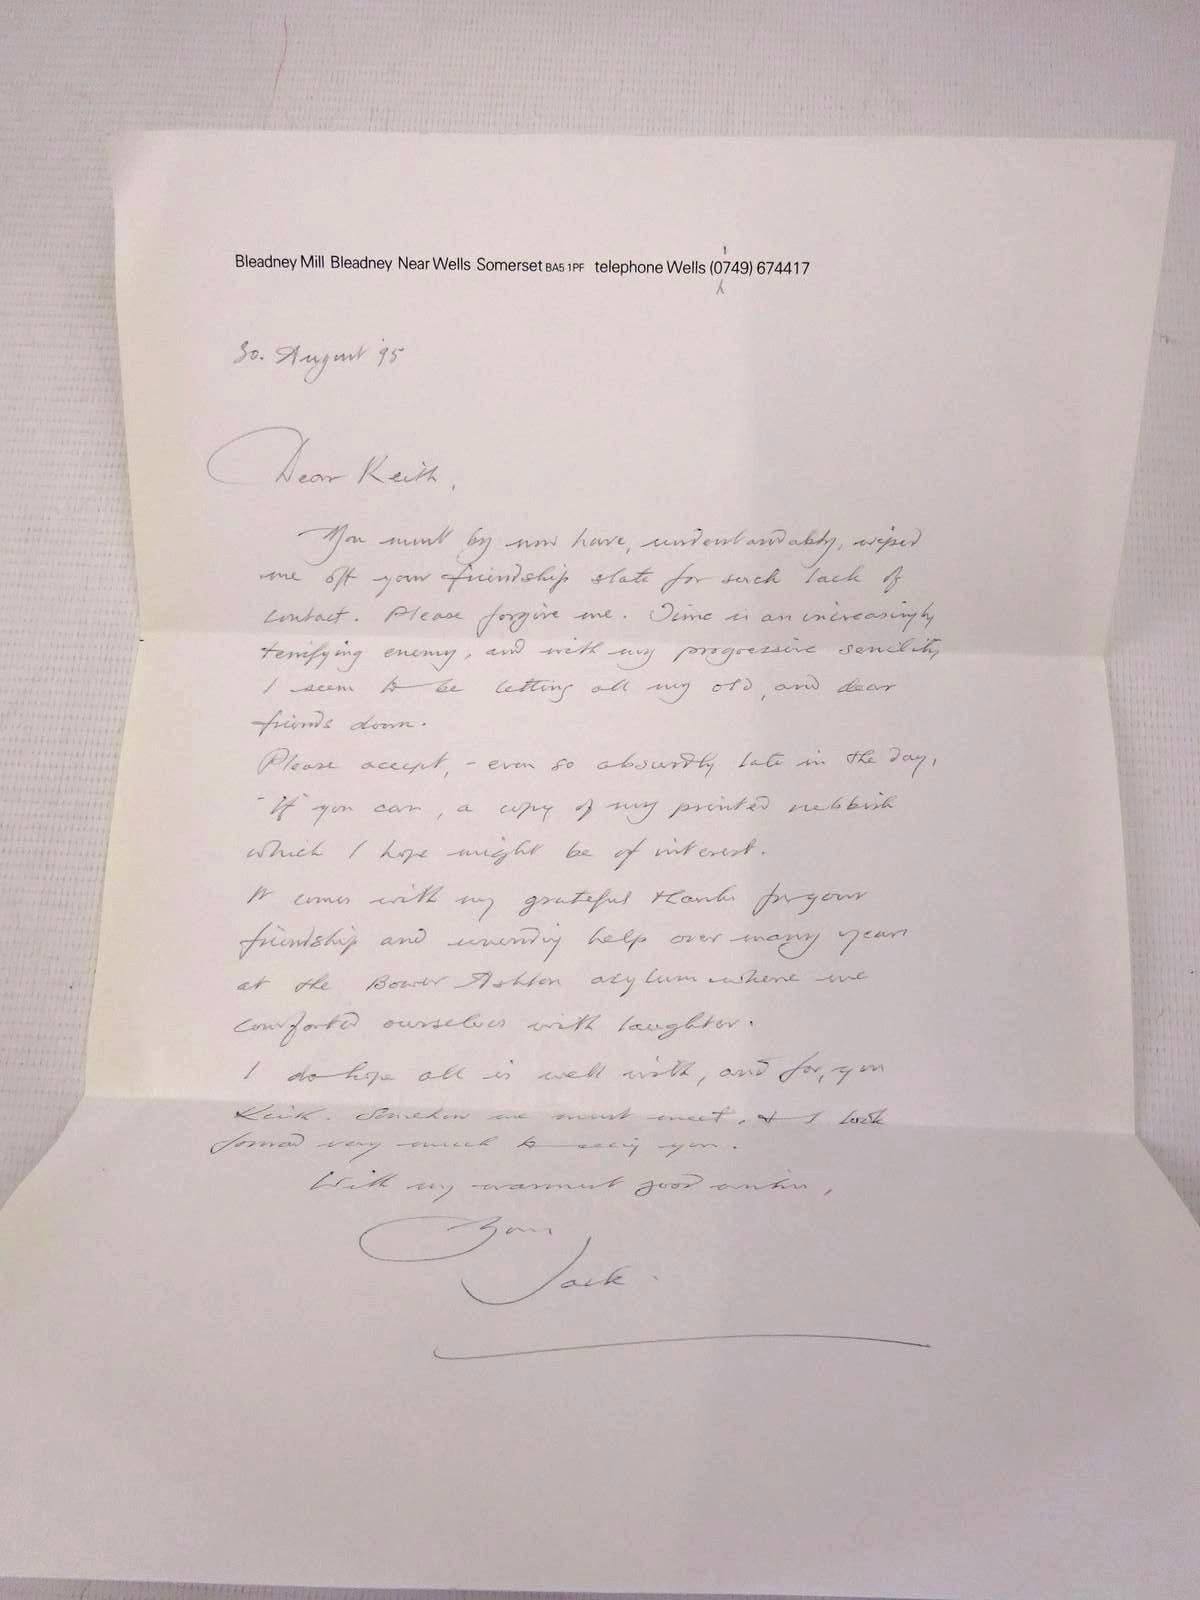 Bleadney Mill Bleadney Near Wells Somerset BA5 1PF telephone Wells (01749) 674417
30. August '95
Dear Keith,
You must by now have, understandably, wiped
me off your friendship slate for such lack of
contact. Please forgive me. Time is an increasingly
terrifying enemy, and with my progressive senility
I seem to be letting all my old, and dear
friends down.
Please accept, - even so absurdly late in the day,
- If you can, a copy of my printed nebbish
which I hope might be of interest.
It comes with my grateful thanks for your
friendship and unending help over many years
at the Bower Ashton asylum where we
comforted ourselves with laughter.
I do hope all is well with, and for, you
Keith. Somehow we must meet, & I look
forward very much to seeing you.
With my warmest good wishes,
Yours
Jack.